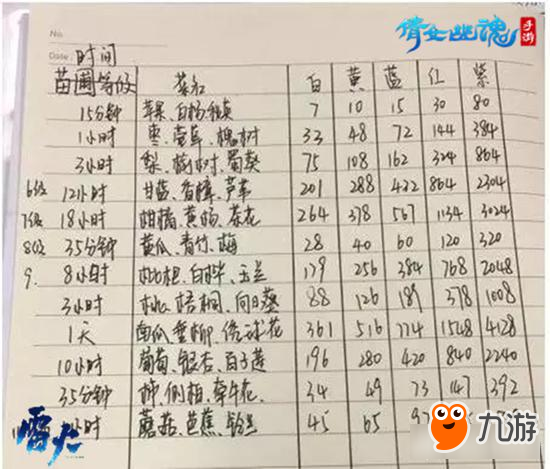 倩女幽魂 手游
No.
Date 时间
苗圃等级 名称 白 黄 蓝 红 紫
15分钟 苹果、白杨、 7 10 15 30 80
1小时 枣、萱草、槐树 33 48 72 144 384
3小时 梨、樹树、蜀葵 75 108 162 324 864
6级 12小时 甘蓝、香樟、芦苇 201 288 432 864 2304
7级 18小时 柑橘、黄杨、茶花 264 378 567 1134 3024
8级 35分钟 黄瓜、青竹、梅 28 40 60 120 320
9. 8小时 枇杷、白桦、玉兰 179 256 384 768 2048
3小时 桃、梧桐、向日葵 88 126 189 378 1008
1天 南瓜、垂柳、绣球花 361 516 774 1548 4128
10小时 葡萄、银杏、百子莲 196 280 420 840 2240
35分钟 柿、侧柏、牵牛花 34 49 73 147 392
小时 蘑菇、芭蕉、铃兰 45 65
雷火
九游